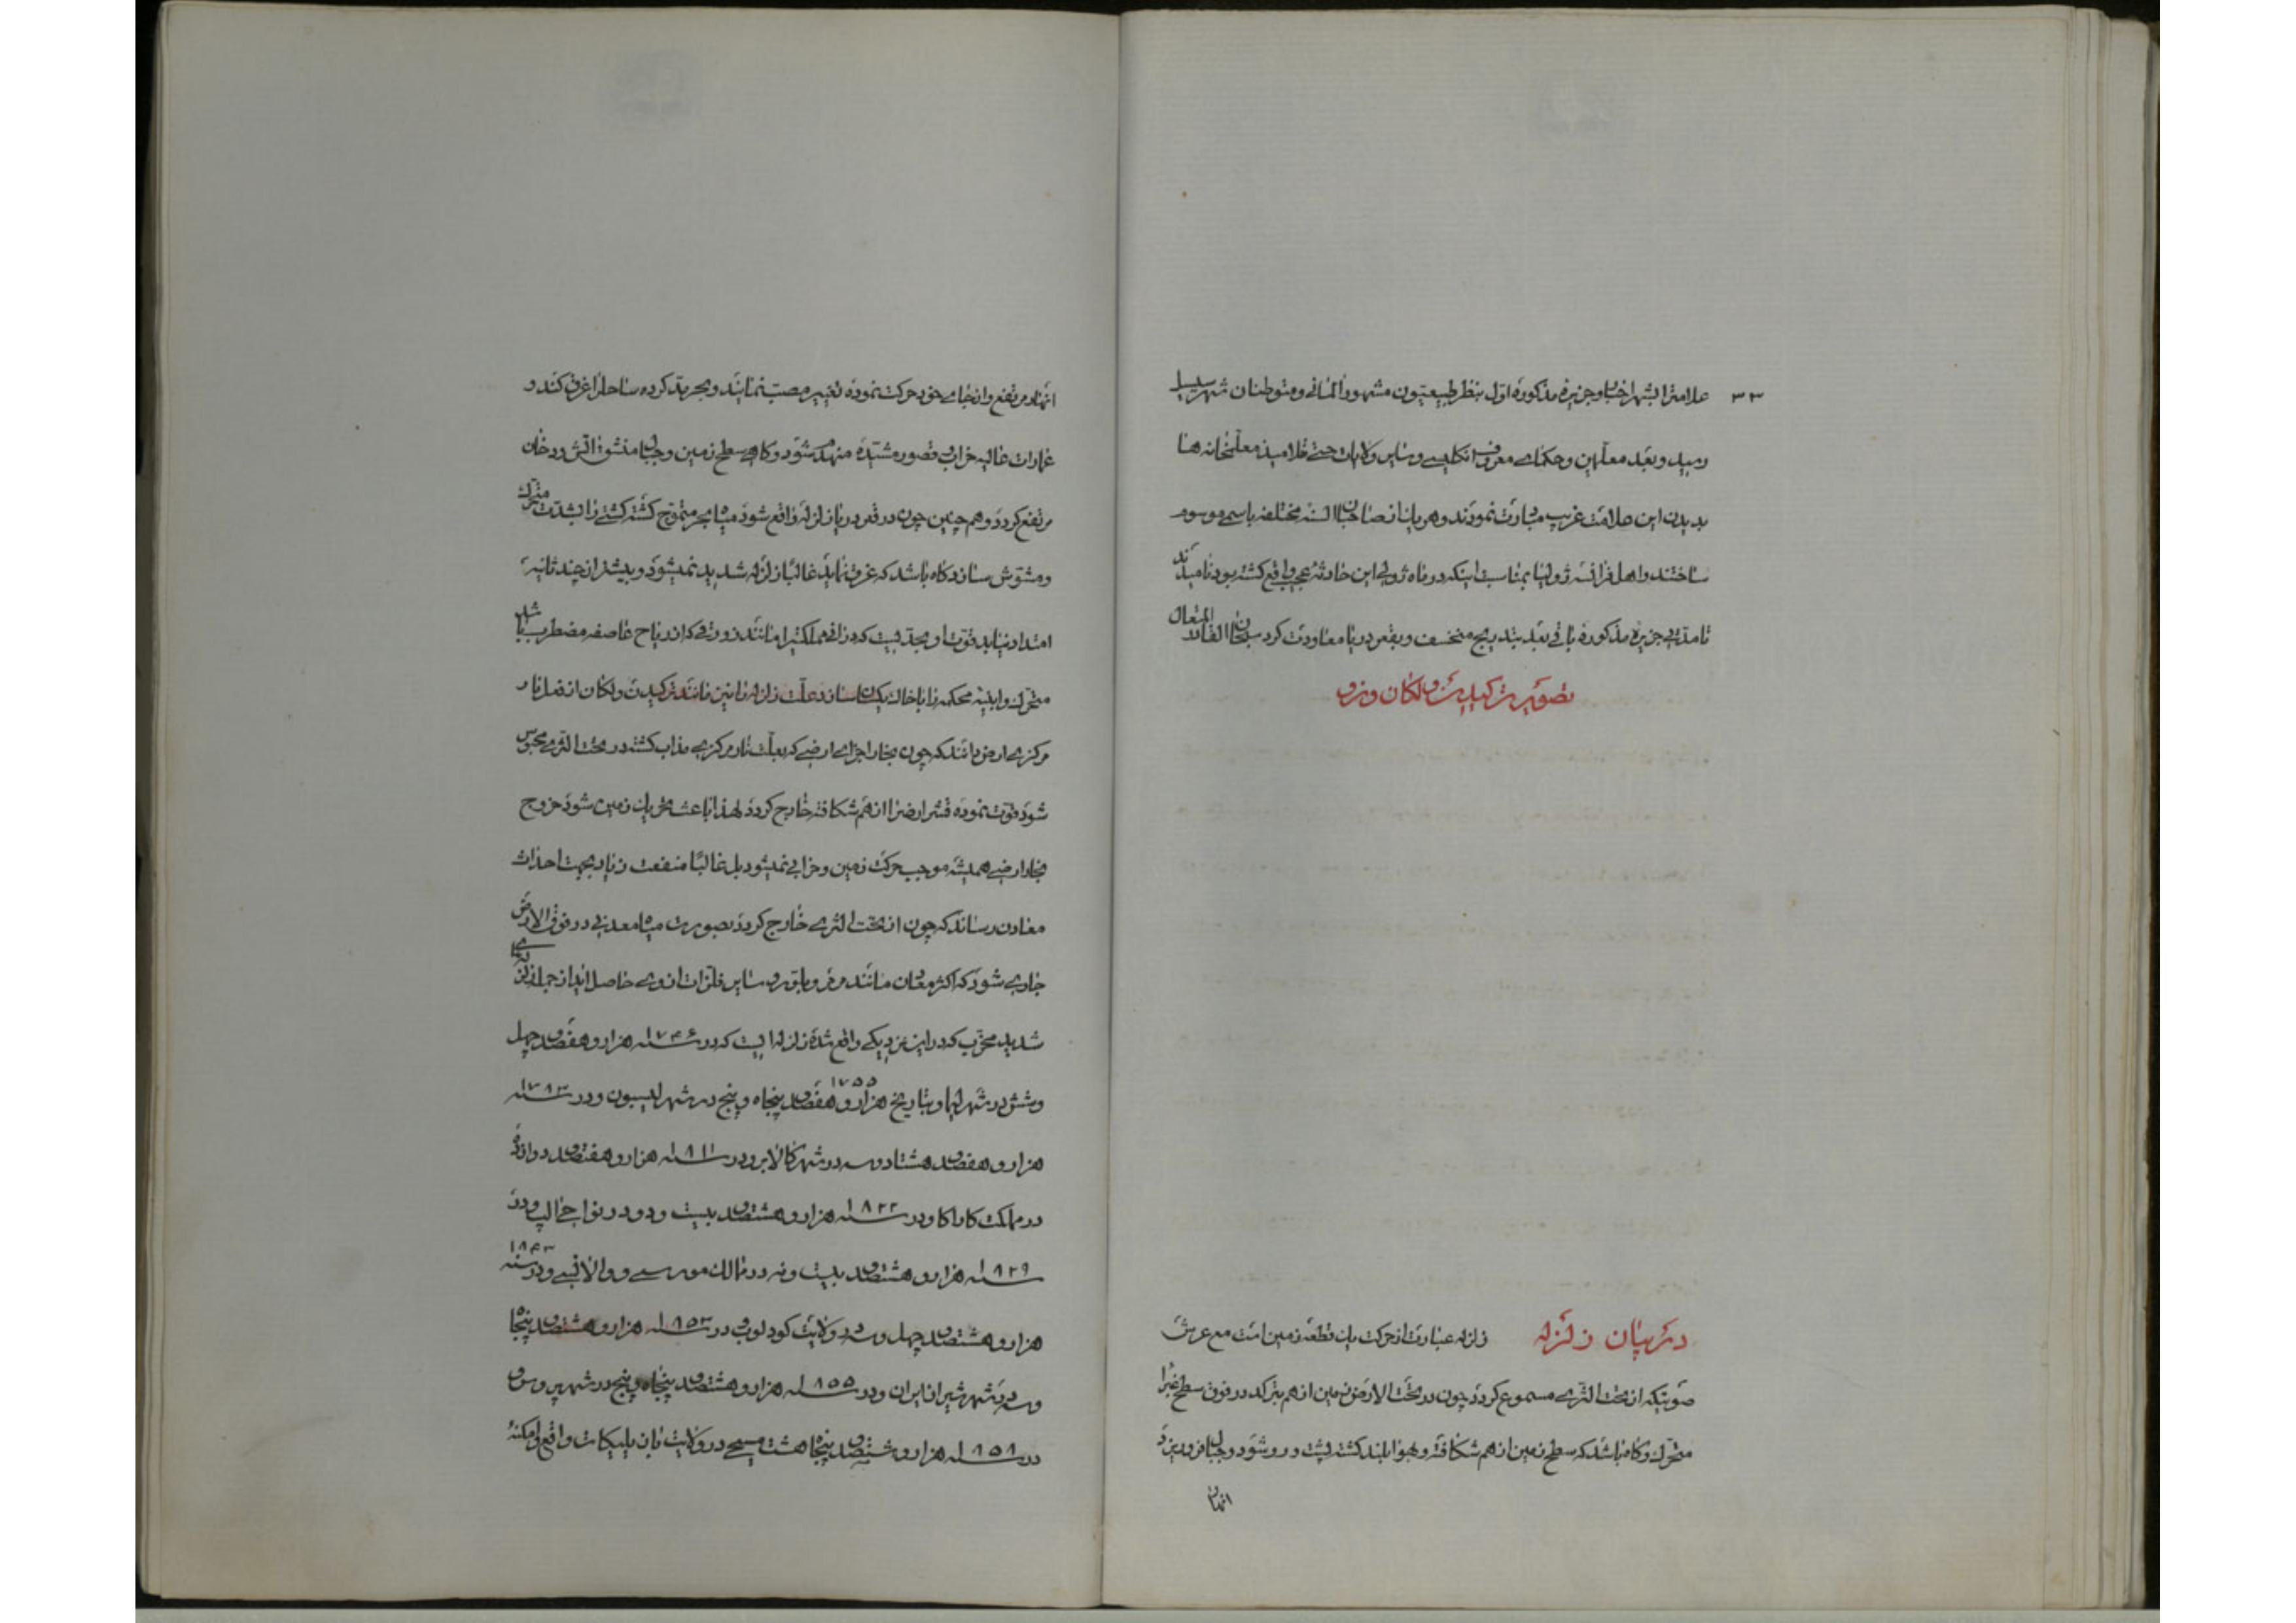 ۳۳
علامترا بشهر اخبار و جزیرهٔ مذکوره اول بنظر طبیعیون مشهور آلمانی و متوطنان شهر سیسیل
رسید و بعد معلمین و حکمای معروف انکلیسی و سایر ولایات حتی تلامیذ معلمخانه ها
بدیدن این علامت غریب مبادرت نمودند و هر یک از صاحبان السنه مختلفه باسمی موسوم
ساختند و اهل فرانسه ژولیا بمناسبت اینکه در ماه ژولی این حادثهٔ عجیب واقع کشته بود نامیدند
تا مدتی جزیرهٔ مذکوره باقی بعد بتدریج منخسف و بقعر دریا معاودت کرد سبحان القادر المتعال
تصویر ترکیدن ولکان وزوو
در بیان زلزله
زلزله عبارت از حرکت یک قطعهٔ زمین است مع غرش
صوتیکه از تحت الثری مسموع کردد چون در تحت الارض زمین از هم بترکد در فوق سطح غبرا
متحرک و کاه باشد که سطح زمین از هم شکافته و بهوا بلند کشته پشت و رو شود و جبال فرو ریزد
انهار
انهار مرتفع و از جای خود حرکت نموده تغییر مصب نمایند و بحر مد کرده ساحل را غرق کند و
عمارات عالیه خراب و قصور مشیده منهدم شود و کاهی سطح زمین و جبال منشق و آتش و دخان
مرتفع کردد و هم چنین چون در قعر دریا زلزله واقع شود میاه بحر متموج کشته کشتی را بشدت متحرک
و مشوش سازد کاه باشد که غرق نماید غالبا زلزله شدید نمیشود و بیشتر از چند ثانیه
امتداد نیابد قوت او بحدیست که در آنی مملکتیرا مانند زورقی که از ریاح عاصفه مضطرب باشد
متحرک و ابنیه محکمه را با خاک یکسان سازد علت زلزله را نیز مانند ترکیدن ولکان از فعل نار
مرکزی ارض دانند که چون بخار اجزای ارضی که بعلت نار مرکزی مذاب کشته در تحت الثری محبوس
شود قوت نموده قشر ارض را از هم شکافته خارج کردد لهذا باعث تحریک زمین شود خروج
بخار ارضی همیشه موجب حرکت زمین و خرابی نمیشود بل غالبا منفعت زیاد بجهت احداث
معادن رساند که چون از تحت الثری خارج کردد بصورت میاه معدنی در فوق الارض
جاری شود که اکثر معادن مانند مرمر و بلور و سایر فلزات از وی حاصل اید از جمله زلزله‌های
شدید مخرب که در این نزدیکی واقع شده زلزله ایست که در سنه ۱۷۴۶ هزار و هفتصد و چهل
و شش در شهر لیما و بتاریخ ۱۷۵۵ هزار و هفتصد و پنجاه و پنج در شهر لیسبون و در سنه ۱۷۸۳
هزار و هفتصد و هشتاد و سه در شهر کالابر و در سنه ۱۸۱۱ هزار و هفتصد و دوازده
در مملکت کاراکا و در سنه ۱۸۲۲ هزار و هشتصد و بیست و دو در نواحی حالپ و در
سنه ۱۸۲۹ هزار و هشتصد و بیست و نه در ممالک مورسی و والانسی و در سنه ۱۸۴۳
هزار و هشتصد و چهل و سه در ولایت کودلوپ و در سنه ۱۸۵۳ هزار و هشتصد و پنجاه
و سه در شهر شیراز ایران و در سنه ۱۸۵۵ هزار و هشتصد و پنجاه و پنج در شهر بروس و
در سنه ۱۸۵۸ هزار و هشتصد و پنجاه هشت مسیحی در ولایت ناپلیکات واقع و امکنهٔ